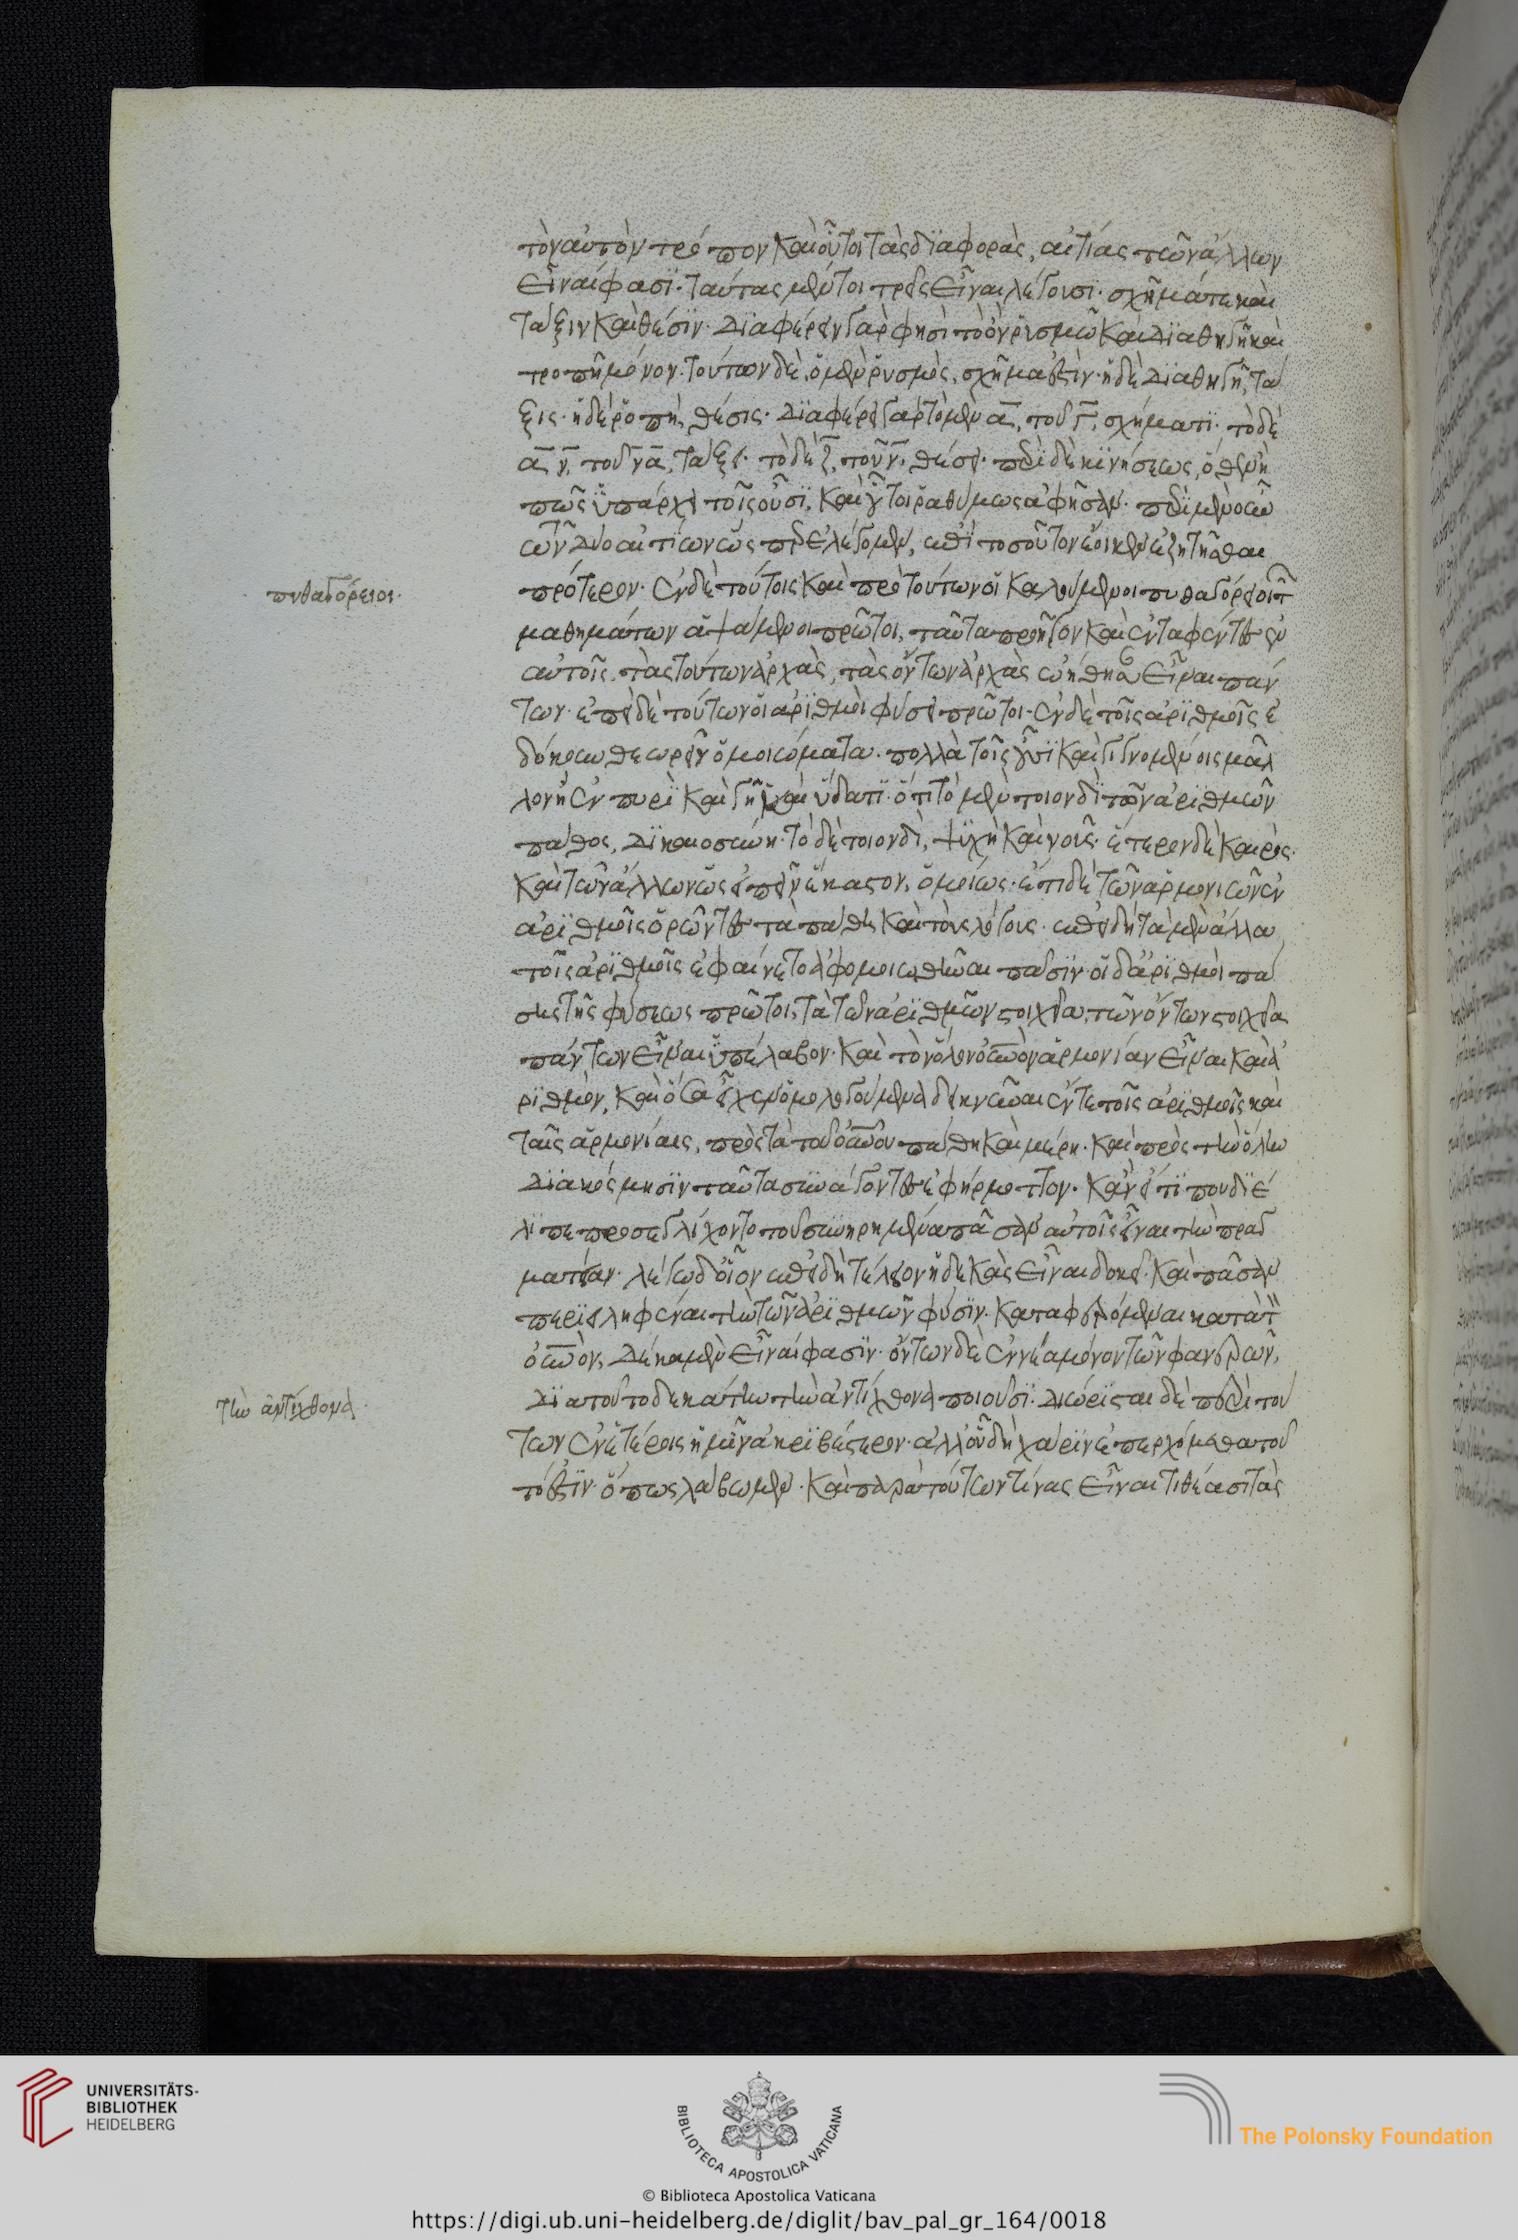 τὸν αὐτὸν τρόπον καὶ οὗτοι τὰς διαφορὰς, αἰτίας τῶν ἄλλων
εἶναί φασϊ· ταύτας μέντοι τρεῖς εἶναι λέγουσϊ· σχῆμά τε καὶ
τάξιν καὶ θέσϊν· διαφέρειν γάρ φησὶ τὸ ὂν ῥυσμῶ καὶ διαθηγῆ καὶ
τροπῆ μόνον· τούτων δὲ, ὁ μὲν ῥυσμὸς, σχῆμα ἐστὶν· ἡ δὲ διαθηγὴ, τά
ξις· ἡ δὲ τροπὴ, θέσις· διαφέρει γὰρ τὸ μὲν α, τοῦ γ, σχήματι· τὸ δὲ
α ν, τοῦ ν α, τάξει· τὸ δὲ ζ, τοῦ ν, θέσει· περὶ δὲ κινήσεως, ὅθεν ἢ
πῶς ὑπάρχει τοῖς οὖσϊ, καὶ οὗτοι ῥαθύμως ἀφεῖσαν· περὶ μὲν οὖν
τῶν δύο αἰτιῶν ὥσπερ λέγομεν, ἐπὶ τοσοῦτον ἔοικεν ἐζητῆσθαι
πρότερον· ἐν δὲ τούτοις καὶ πρὸ τούτων οἱ καλούμενοι πυθαγόρειοι τῶν
πυθαγόρειοι·
μαθημάτων ἁψάμενοι πρῶτοι, ταῦτα προῆγον καὶ ἐνταφέντες ἐν
αὐτοῖς, τὰς τούτων ἀρχὰς, τῶν ὄντων ἀρχὰς ᾠήθησαν εἶναι πάν
των· ἐπεὶ δὲ τούτων οἱ ἀριθμοὶ φύσει πρῶτοι· ἐν δὲ τοῖς ἀριθμοῖς ἐ
δόκουν θεωρεῖν ὁμοιώματα πολλὰ τοῖς οὖσϊ καὶ γιγνομένοις μᾶλ
λον ἢ ἐν πυρὶ καὶ γῆ καὶ ὕδατϊ· ὅτι τὸ μὲν τοιονδὶ τῶν ἀριθμῶν
πάθος, δικαιοσύνη· τὸ δὲ τοιονδὶ, ψυχὴ καὶ νοῦς· ἕτερον δὲ καιρὸς·
καὶ τῶν ἄλλων ὡς εἰπεῖν ἕκαστον, ὁμοίως· ἔτι δὲ τῶν ἁρμονιῶν ἐν
ἀριθμοῖς ὁρῶντες τὰ πάθη καὶ τοὺς λόγους· ἐπειδὴ τὰ μὲν ἄλλα
τοῖς ἀριθμοῖς ἐφαίνετο ἀφομοιωθῆναι πᾶσϊν· οἱ δ' ἀριθμοὶ πά
σης τῆς φύσεως πρῶτοι, τὰ τῶν ἀριθμῶν στοιχεῖα, τῶν ὄντων στοιχεῖα
πάντων εἶναι ὑπέλαβον· καὶ τὸν ὅλον οὐνὸν ἁρμονίαν εἶναι καὶ ἀ
ριθμὸν, καὶ ὅσα εἶχον ὁμολογούμενα δεικνύναι ἔν τε τοῖς ἀριθμοῖς καὶ
ταῖς ἁρμονίαις, πρὸς τὰ τοῦ οὐνοῦ πάθη καὶ μέρη· καὶ πρὸς τὴν ὅλην
διακόσμησϊν ταῦτα συνάγοντες ἐφήρμοττον· κἂν εἴ τϊ που διέ
λιπε προσεγλίχοντο τοῦ συνηρημένα πᾶσαν αὐτοῖς εἶναι τὴν πραγ
ματείαν· λέγω δ' οἷον ἐπειδὴ τέλειον ἡ δεκὰς εἶναι δοκεῖ· καὶ πᾶσαν
περιειληφέναι τὴν τῶν ἀριθμῶν φύσϊν· καὶ τὰ φερόμενα κατὰ τὸν
οὐνὸν, δέκα μὲν εἶναί φασϊν· ὄντων δὲ ἐννέα μόνον τῶν φανερῶν,
διὰ τοῦτο δεκάτην τὴν ἀντίχθονα ποιοῦσϊ· διώρισται δὲ περὶ τού
τὴν ἀντίχθονα·
των ἐν ἑτέροις ἡμῖν ἀκριβέστερον· ἀλλ' οὗ δὴ χάριν ἐπερχόμεθα τοῦ
τό ἐστϊν· ὅπως λάβωμεν· καὶ παρὰ τούτων τίνας εἶναι τιθέασι τὰς
UNIVERSITÄTS-
BIBLIOTHEK
HEIDELBERG
BIBLIOTECA APOSTOLICA VATICANA
The Polonsky Foundation
© Biblioteca Apostolica Vaticana
https://digi.ub.uni-heidelberg.de/diglit/bav_pal_gr_164/0018